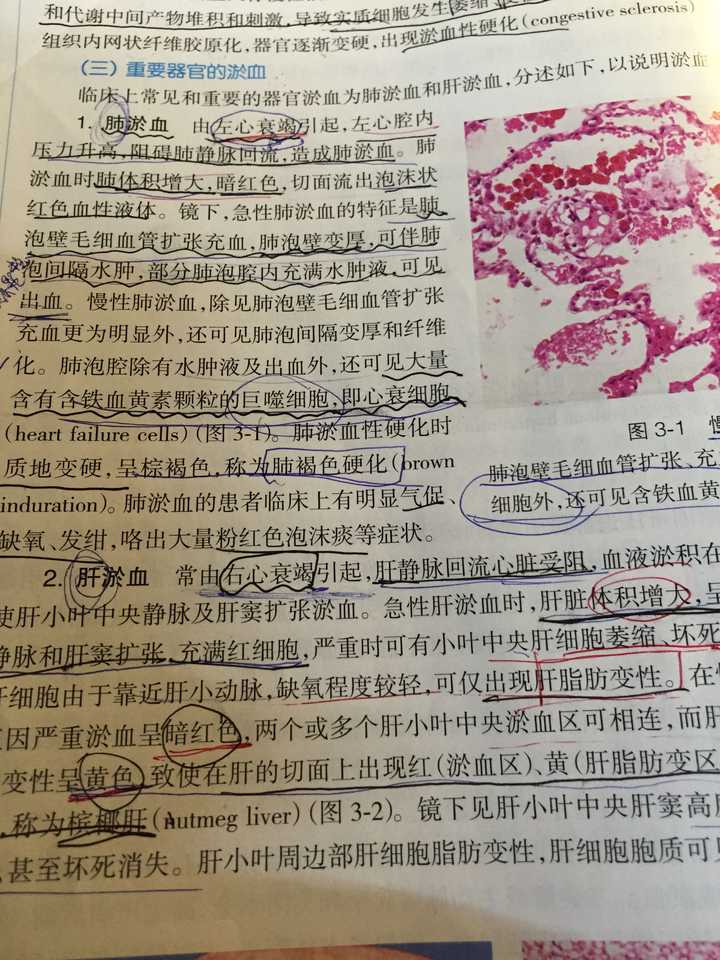 和代谢中间产物堆积和刺激，导致实质细胞发生萎缩
组织内网状纤维胶原化，器官逐渐变硬，出现淤血性硬化(congestive sclerosis)
（三）重要器官的淤血
临床上常见和重要的器官淤血为肺淤血和肝淤血，分述如下，以说明淤血
1. 肺淤血 由左心衰竭引起，左心腔内
压力升高，阻碍肺静脉回流，造成肺淤血。肺
淤血时肺体积增大，暗红色，切面流出泡沫状
红色血性液体。镜下，急性肺淤血的特征是肺
泡壁毛细血管扩张充血，肺泡壁变厚，可伴肺
泡间隔水肿，部分肺泡腔内充满水肿液，可见
出血。慢性肺淤血，除见肺泡壁毛细血管扩张
充血更为明显外，还可见肺泡间隔变厚和纤维
化。肺泡腔除有水肿液及出血外，还可见大量
含有含铁血黄素颗粒的巨噬细胞，即心衰细胞
(heart failure cells)(图 3-1)。肺淤血性硬化时
质地变硬，呈棕褐色，称为肺褐色硬化(brown
induration)。肺淤血的患者临床上有明显气促、
缺氧、发绀，咯出大量粉红色泡沫痰等症状。
图 3-1
肺泡壁毛细血管扩张、充
细胞外，还可见含铁血黄
2. 肝淤血 常由右心衰竭引起，肝静脉回流心脏受阻，血液淤积在
使肝小叶中央静脉及肝窦扩张淤血。急性肝淤血时，肝脏体积增大，呈
静脉和肝窦扩张，充满红细胞，严重时可有小叶中央肝细胞萎缩、坏死
肝细胞由于靠近肝小动脉，缺氧程度较轻，可仅出现肝脂肪变性。在
因严重淤血呈暗红色，两个或多个肝小叶中央淤血区可相连，而肝
变性呈黄色，致使在肝的切面上出现红(淤血区)、黄(肝脂肪变区
，称为槟榔肝(nutmeg liver)(图 3-2)。镜下见肝小叶中央肝窦高
，甚至坏死消失。肝小叶周边部肝细胞脂肪变性，肝细胞胞质可